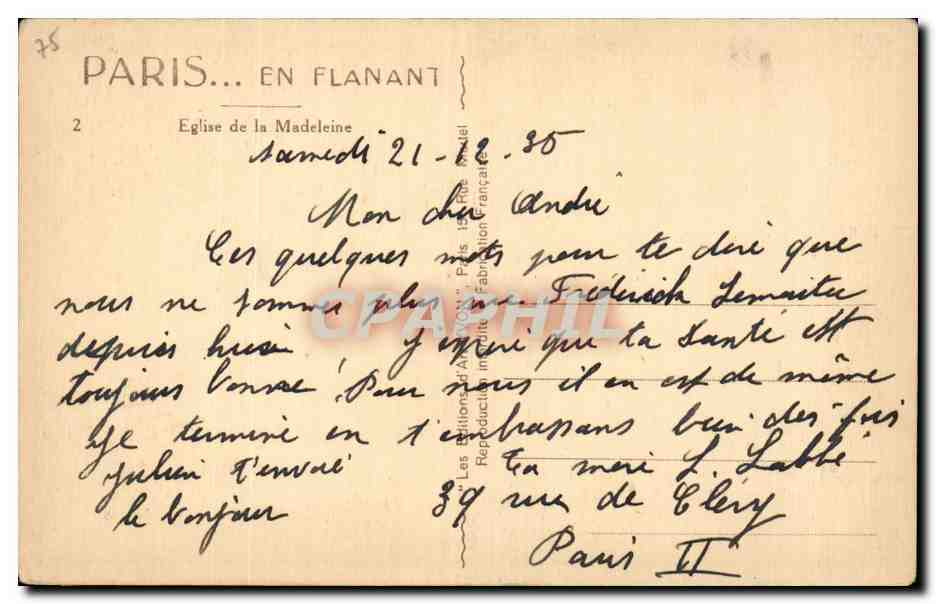 75
PARIS... EN FLANANT
2 Eglise de la Madeleine
Samedi 21-12-35
Mon cher André
Ces quelques mots pour te dire que
nous ne sommes plus rue Frédérick Lemaitre
depuis hier j'espère que ta santé est
toujours bonne. Pour nous il en est de même
Je termine en t'embrassant bien des fois
Julien t'envoie Ta mère L. Labbé
le bonjour 39 rue de Cléry
Paris II
"Les Editions d'Art YVON", Paris 15, Rue Martel
Reproduction interdite Fabrication Française
CPAPHIL